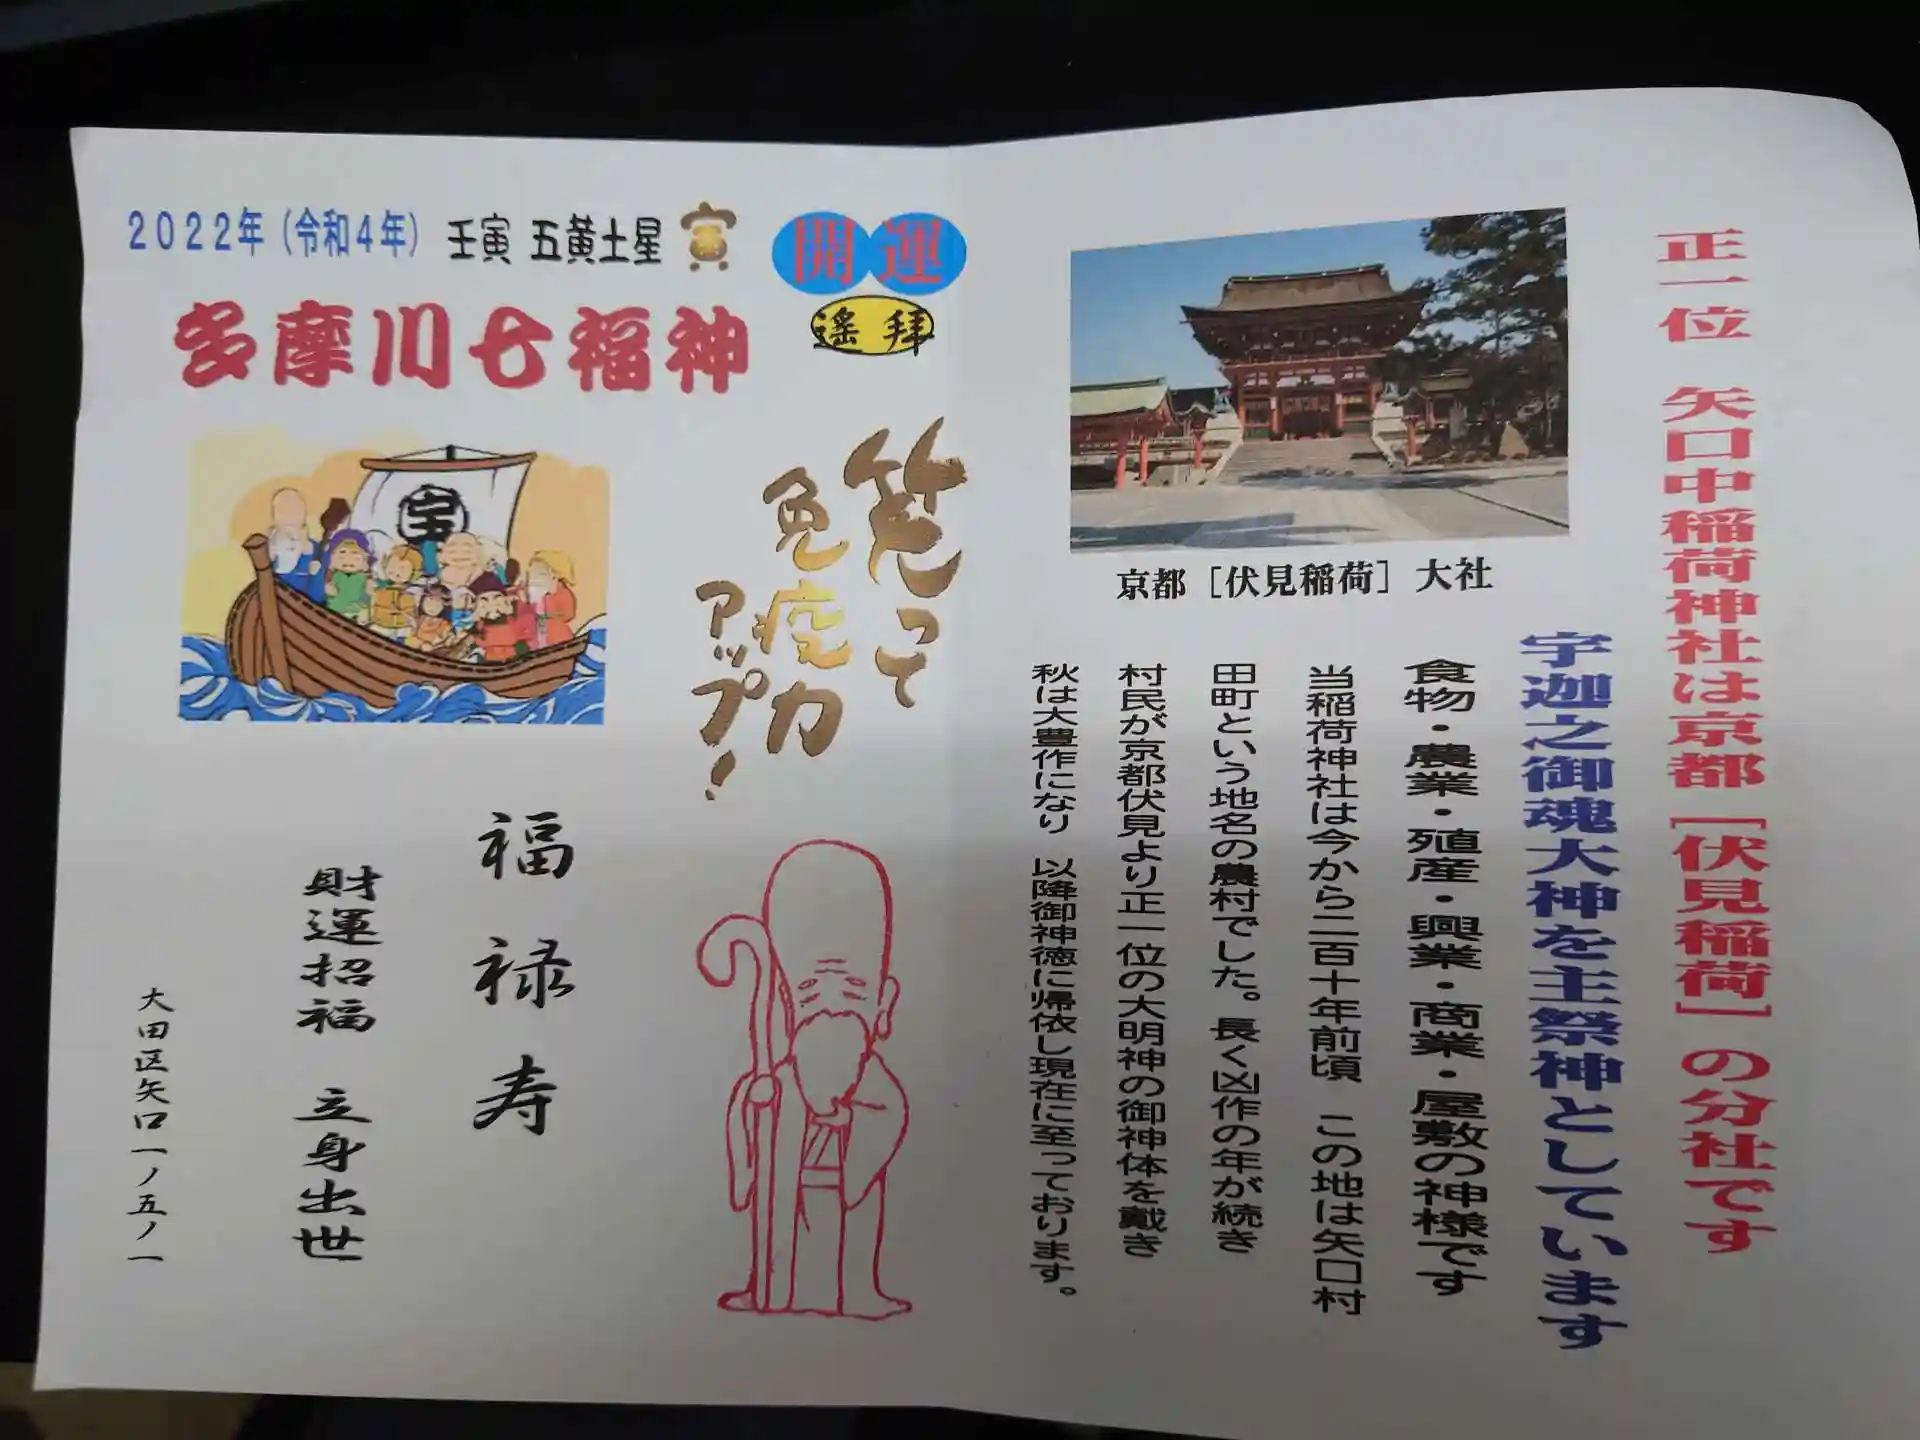 正一位 矢口中稲荷神社は京都［伏見稲荷］の分社です
宇迦之御魂大神を主祭神としています
食物・農業・殖産・興業・商業・屋敷の神様です
当稲荷神社は今から二百十年前頃 この地は矢口村
田町という地名の農村でした。長く凶作の年が続き
村民が京都伏見より正一位の大明神の御神体を戴き
秋は大豊作になり 以降御神徳に帰依し現在に至っております。
京都［伏見稲荷］大社
2022年（令和4年） 壬寅 五黄土星 寅
開運
遙拝
多摩川七福神
宝
笑って
免疫力
アップ！
福禄寿
財運招福 立身出世
大田区矢口一ノ五ノ一